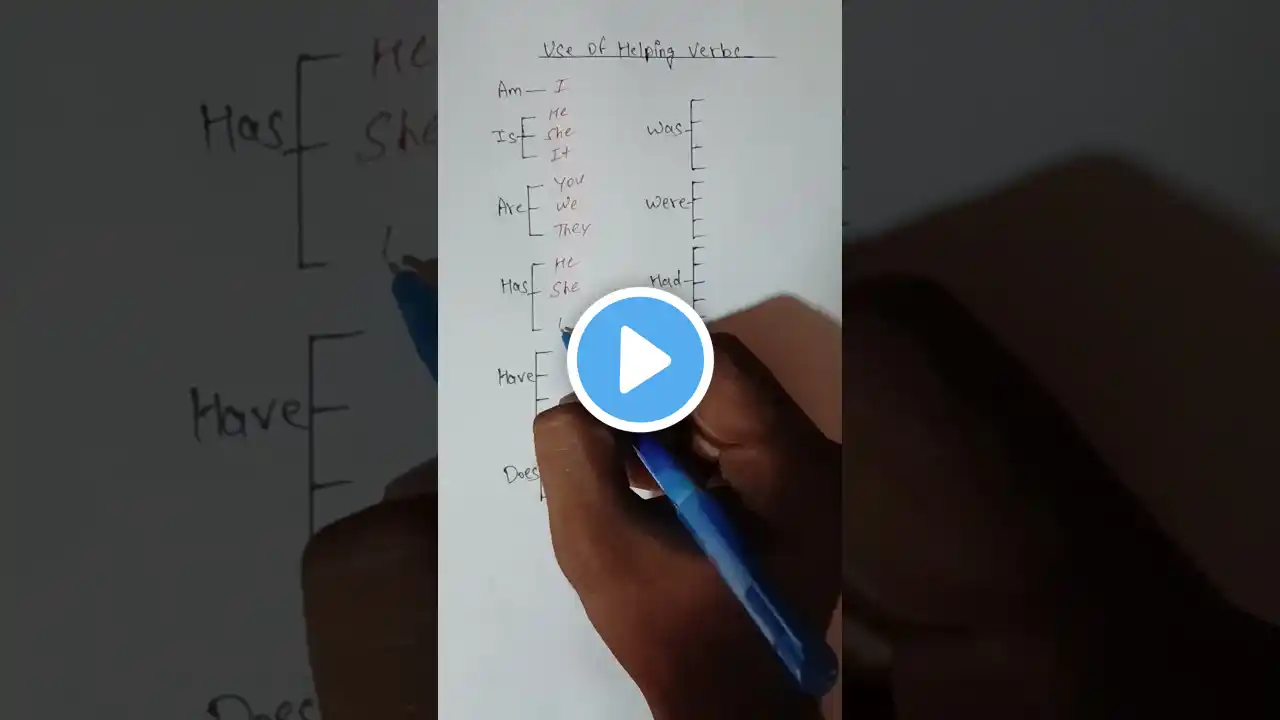 Use Of Helping Verbs
Am I
Is
He
She
It
Are
You
We
They
Has
He
She
Have
Does
Was
Were
Had